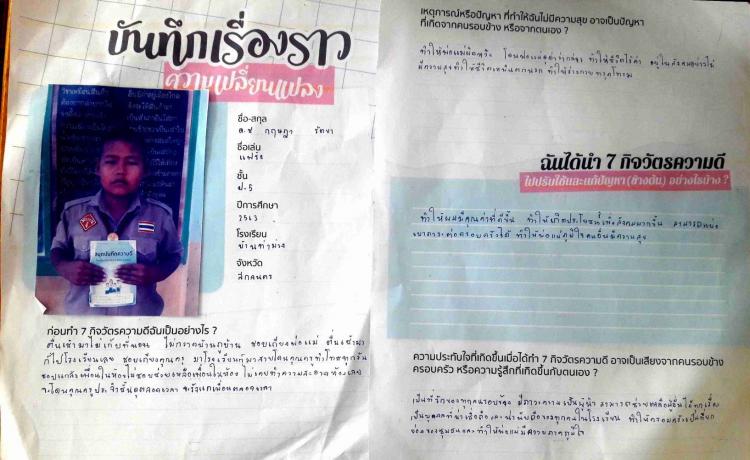 บันทึกเรื่องราว
ความเปลี่ยนแปลง
ชื่อ-สกุล
ด.ช กฤษฎา
ชื่อเล่น
ชั้น
ป.5
ปีการศึกษา
2563
โรงเรียน
จังหวัด
สกลนคร
สมุดบันทึกความดี
ก่อนทำ 7 กิจวัตรความดีฉันเป็นอย่างไร ?
ตื่นเช้ามาไม่เก็บที่นอน ไม่กวาดบ้านถูบ้าน ชอบเถียงพ่อแม่ ตื่นเช้ามา
ก็ไปโรงเรียนเลย ชอบเถียงคุณครู มาโรงเรียนก็มาสายโดนคุณครูทำโทษทุกวัน
ชอบแกล้งเพื่อนในห้องไม่ชอบช่วยเหลือเพื่อนในห้อง ไม่เคยทำความสะอาดห้องเลย
จะโดนคุณครูประจำชั้นดุตลอดเวลา
เหตุการณ์หรือปัญหา ที่ทำให้ฉันไม่มีความสุข อาจเป็นปัญหา
ที่เกิดจากคนรอบข้าง หรือจากตนเอง ?
ทำให้พ่อแม่ผิดหวัง โดนพ่อแม่ด่าว่ากล่าว ทำให้ชีวิตไร้ค่า อยู่ในสังคมอย่างไม่
มีความสุข
ฉันได้นำ 7 กิจวัตรความดี
ไปปรับใช้และแก้ปัญหา (ข้างต้น) อย่างไรบ้าง ?
ทำให้ผมมีคุณค่าที่ดีขึ้น ทำให้เกิดประโยชน์เพื่อสังคมมากขึ้น สามารถแบ่ง
เบาภาระต่อครอบครัวได้ ทำให้พ่อแม่ภูมิใจ มีความสุข
ความประทับใจที่เกิดขึ้นเมื่อได้ทำ 7 กิจวัตรความดี อาจเป็นเสียงจากคนรอบข้าง
ครอบครัว หรือความรู้สึกที่เกิดขึ้นกับตนเอง ?
เป็นที่รักของทุกคนรอบข้าง มีภาวะความเป็นผู้นำ สามารถช่วยเหลือผู้อื่นได้ทุกเรื่อง
เป็นบุคคลที่น่าเชื่อถือและน่านับถือของทุกคนในโรงเรียน ทำให้ครอบครัวเป็นที่ยก
ย่องของชุมชนและทำให้พ่อแม่มีความภาคภูมิใจ